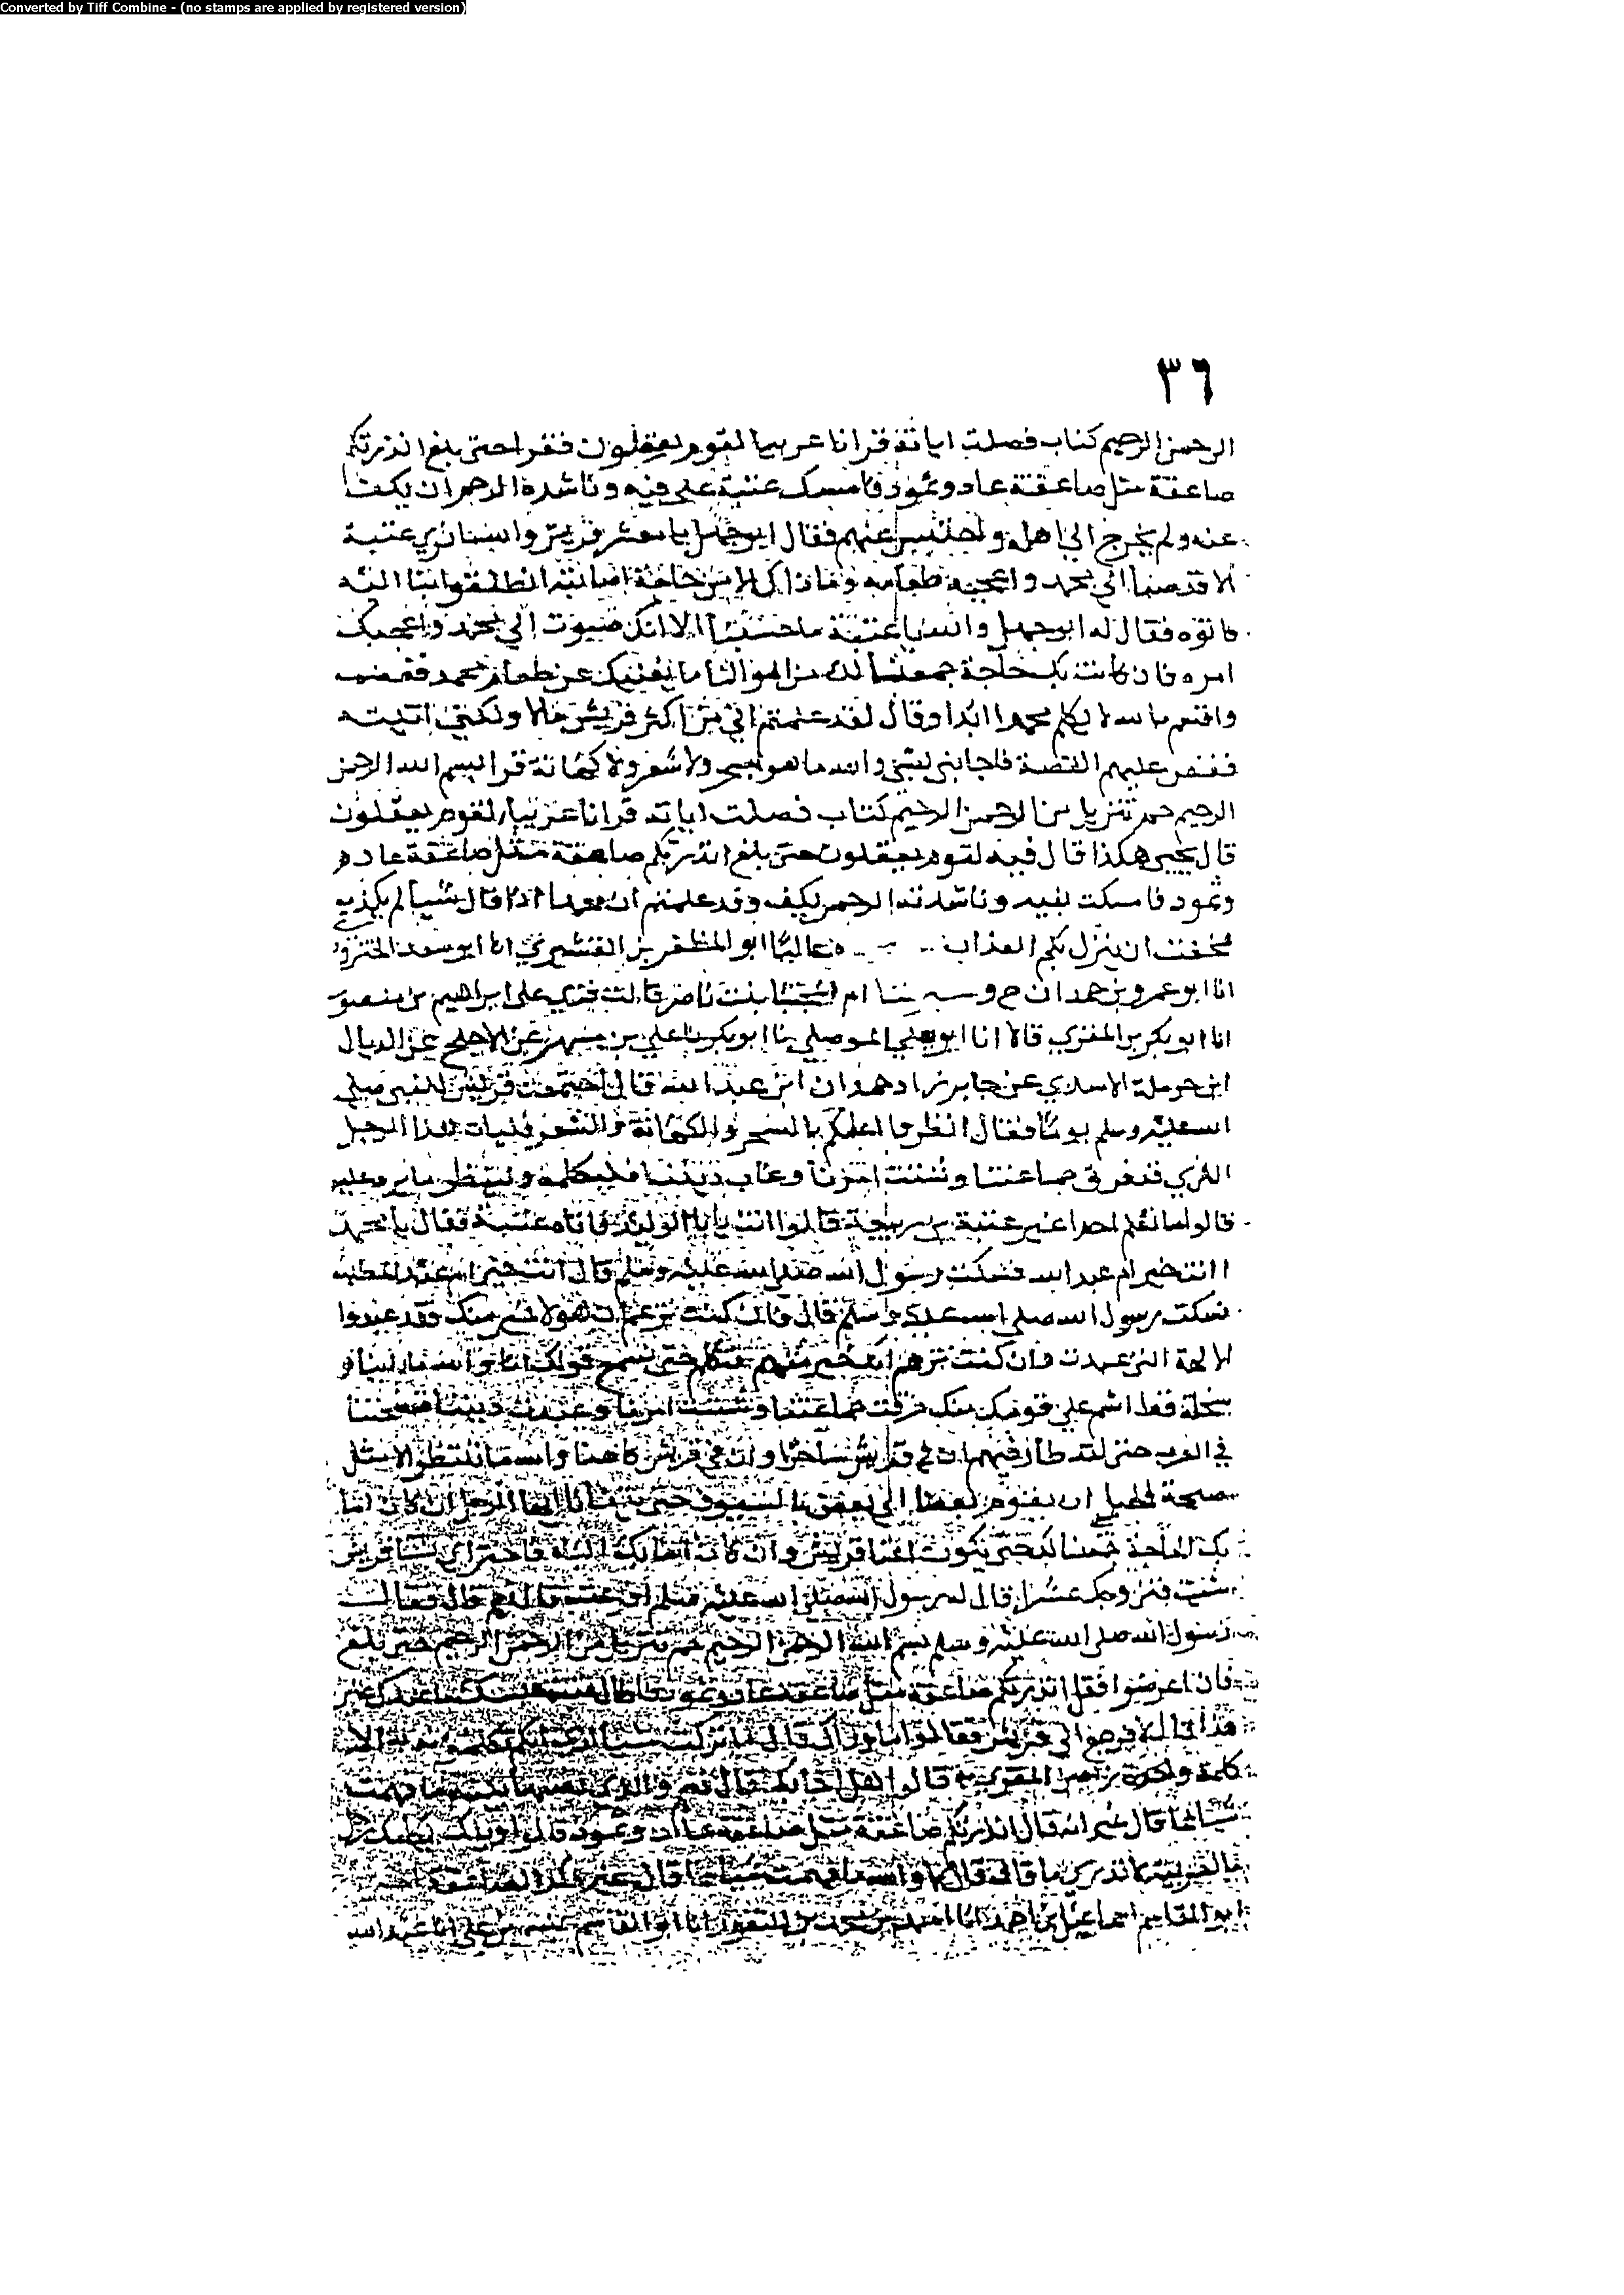 Converted by Tiff Combine - (no stamps are applied by registered version)
٣٦
الرحمن الرحيم كتاب فصلت اياته قرانا عربيا لقوم يعقلون فقرا حتى بلغ انذرتكم
صاعقة مثل صاعقة عاد وثمود فامسك عتبة على فيه وناشده الرحم ان يكف
عنه ولم يخرج الى اهله واحتبس عنهم فقال ابو جهل يا معشر قريش والله ما نرى عتبة
الا قد صبا الى محمد واعجبه طعامه وما ذاك الا من حاجة اصابته انطلقوا بنا اليه
فاتوه فقال له ابو جهل والله يا عتبة ما حسبنا الا انك صبوت الى محمد واعجبك
امره فان كانت بك حاجة جمعنا لك من اموالنا ما يغنيك عن طعام محمد فغضب
واقسم بالله لا يكلم محمدا ابدا وقال لقد علمتم اني من اكثر قريش مالا ولكني اتيته
فقص عليهم القصة فاجابني بشي والله ما هو بسحر ولا شعر ولا كهانة قرا بسم الله الرحمن
الرحيم حم تنزيل من الرحمن الرحيم كتاب فصلت اياته قرانا عربيا لقوم يعقلون
قال يحيى هكذا قال فيه لقوم يعقلون حتى بلغ انذرتكم صاعقة مثل صاعقة عاد
وثمود فامسكت بفيه وناشدته الرحم يكف وقد علمتم ان محمدا اذا قال شيا لم يكذب
فخفت ان ينزل بكم العذاب عاليا ابو المظفر بن القشيري انا ابو سعد الجنزرودي
انا ابو عمرو بن حمدان ح و ام المجتبا بنت ناصر قالت قري على ابراهيم بن منصور
انا ابو بكر بن المقري قالا انا ابو يعلي الموصلي نا ابو بكر نا علي بن مسهر عن الاجلح عن الذيال
ابن حرملة الاسدي عن جابر زاد حمدان ابن عبد الله قال اجتمعت قريش للنبي صلى
الله عليه وسلم يوما فقال انظروا اعلمكم بالسحر والكهانة والشعر فليات هذا الرجل
الذي قد فرق جماعتنا وشتت امرنا وعاب ديننا فليكلمه ولينظر ما يرد عليه
قالوا ما نعلم احدا غير عتبة بن ربيعة قالوا انت يا ابا الوليد فاتاه عتبة فقال يا محمد
اانت خير ام عبد الله فسكت رسول الله صلى الله عليه وسلم قال انت خير ام عبد المطلب
فسكت رسول الله صلى الله عليه وسلم قال فان كنت تزعم ان هولا خير منك فقد عبدوا
الالهة التي عبدت وان كنت تزعم انك خير منهم فتكلم حتى نسمع قولك انا والله ما راينا
سخلة قط اشم على قومك منك فرقت جماعتنا وشتت امرنا وعبت ديننا وفضحتنا
في العرب حتى لقد طار فيهم ان في قريش ساحرا وان في قريش كاهنا والله ما ننتظر الا مثل
صيحة الحبلى ان يقوم بعضنا الى بعض بالسيوف حتى نتفانا ايها الرجل ان كان انما
بك الحاجة جمعنا لك حتى تكون اغنا قريش وان كان انما بك الباه فاختر اي نسا قريش
شيت فنزوجك عشرا قال له رسول الله صلى الله عليه وسلم افرغت قال نعم قال فقال
رسول الله صلى الله عليه وسلم بسم الله الرحمن الرحيم حم تنزيل من الرحمن الرحيم حتى بلغ
فان اعرضوا فقل انذرتكم صاعقة مثل صاعقة عاد وثمود فقال عتبة حسبك ما عندك غير
هذا قال لا فرجع الى قريش فقالوا ما وراك قال ما تركت شيا ارى انكم تكلمونه به الا
كلمته قالوا هل اجابك قال نعم والذي نصبها بنية ما فهمت
شيا مما قال غير انه قال انذرتكم صاعقة مثل صاعقة عاد وثمود قالوا ويلك يكلمك رجل
بالعربية ما تدري ما قال قال لا والله ما فهمت شيا مما قال غير ذكر الصاعقة
ابو القاسم اسماعيل بن احمد انا احمد بن محمد بن النقور انا ابو القاسم عيسى بن علي انا عبد الله